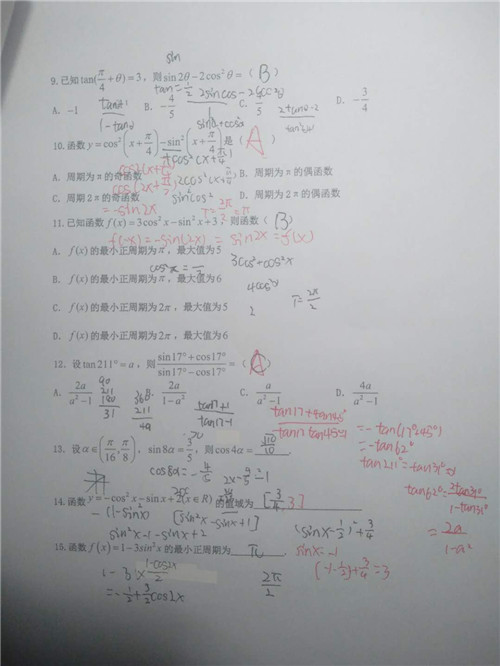 sin
9. 已知 tan(π/4+θ)=3，则 sin2θ-2cos²θ=( B )
tan=1/2 2sincos-2cos²
A. -1 B. -4/5 C. 4/5 D. -3/4
1-tanθ sin²+cos²
10. 函数 y=cos²(x+π/4)-sin²(x+π/4)是( A )
A. 周期为π的奇函数 B. 周期为π的偶函数
cos(2x+π/2)
C. 周期2π的奇函数 D. 周期为2π的偶函数
=-sin2x
11. 已知函数 f(x)=3cos²x-sin²x+3，则函数( B )
f(-x)=-sin(2x)=sin2x=f(x)
A. f(x)的最小正周期为π，最大值为5
3cos²+cos²x
B. f(x)的最小正周期为π，最大值为6
4cos²x
C. f(x)的最小正周期为2π，最大值为5
T=2π/2
D. f(x)的最小正周期为2π，最大值为6
12. 设tan211°=a，则 (sin17°+cos17°)/(sin17°-cos17°)=( )
A. 2a/(a²-1) B. 2a/(1-a²) C. a/(a²-1) D. 4a/(a²-1)
211 180 31
tan17+1
tan17-1
tan17+tan45°
tan17tan45-1
=-tan(17°+45°)
=-tan62°
tan211°=tan31°=a
13. 设α∈(π/16,π/8)，sin8α=3/5，则cos4α= √10/10 .
cos8α=-4/5
tan62°=2tan31°/(1-tan31°)
14. 函数 y=-cos²x-sinx+2(x∈R)的值域为 [3/4,3]
-(1-sin²x)
[sin²x-sinx+1]
(sinx-1/2)²+3/4
=2a/(1-a²)
sin²x-1-sinx+2
15. 函数f(x)=1-3sin²x的最小正周期为 π .
sinx=-1
1-3×(1-cos2x)/2
2π/2
=-1/2+3/2cos2x